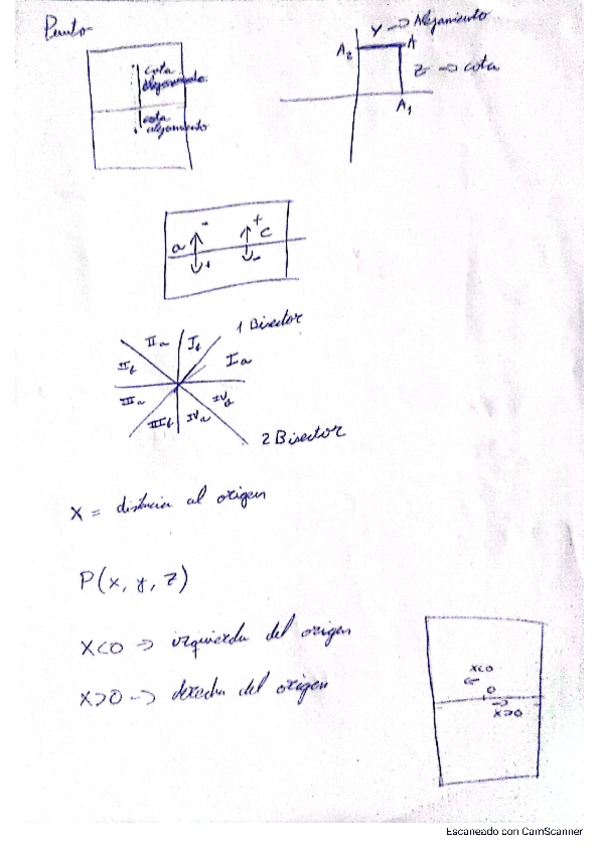 Punto
Y -> Alejamiento
A2 A
Z -> cota
A1
cota
alejamiento
cota
alejamiento
a - + + c -
1 Bisector
IIa Ib
IIb Ia
IIIa IVb
IIIb IVa
2 Bisector
X = distancia al origen
P(x, y, z)
X<0 => izquierda del origen
X>0 -> derecha del origen
X<0
←
0
→
X>0
Escaneado con CamScanner